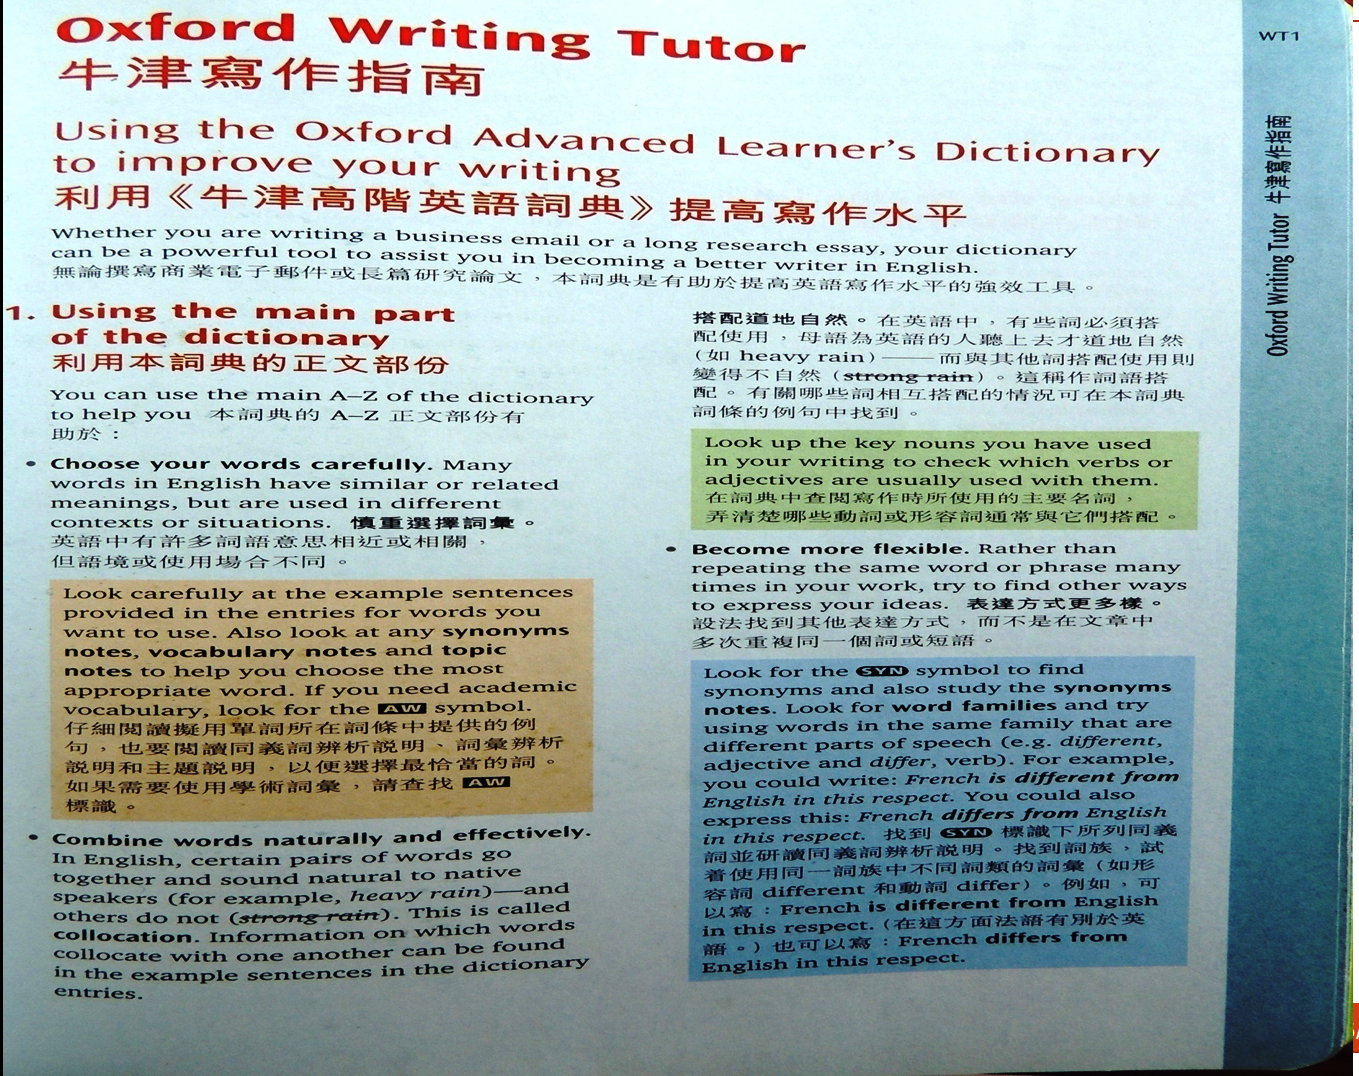 Oxford Writing Tutor
牛津寫作指南
Using the Oxford Advanced Learner's Dictionary
to improve your writing
利用《牛津高階英語詞典》提高寫作水平
Whether you are writing a business email or a long research essay, your dictionary
can be a powerful tool to assist you in becoming a better writer in English.
無論撰寫商業電子郵件或長篇研究論文，本詞典是有助於提高英語寫作水平的強效工具。
1. Using the main part
of the dictionary
利用本詞典的正文部份
You can use the main A–Z of the dictionary
to help you 本詞典的 A–Z 正文部份有
助於：
• Choose your words carefully. Many
words in English have similar or related
meanings, but are used in different
contexts or situations. 慎重選擇詞彙。
英語中有許多詞語意思相近或相關，
但語境或使用場合不同。
Look carefully at the example sentences
provided in the entries for words you
want to use. Also look at any synonyms
notes, vocabulary notes and topic
notes to help you choose the most
appropriate word. If you need academic
vocabulary, look for the AW symbol.
仔細閱讀擬用單詞所在詞條中提供的例
句，也要閱讀同義詞辨析説明、詞彙辨析
説明和主題説明，以便選擇最恰當的詞。
如果需要使用學術詞彙，請查找 AW
標識。
• Combine words naturally and effectively.
In English, certain pairs of words go
together and sound natural to native
speakers (for example, heavy rain)—and
others do not (strong rain). This is called
collocation. Information on which words
collocate with one another can be found
in the example sentences in the dictionary
entries.
搭配道地自然。在英語中，有些詞必須搭
配使用，母語為英語的人聽上去才道地自然
（如 heavy rain）—— 而與其他詞搭配使用則
變得不自然（strong rain）。這稱作詞語搭
配。有關哪些詞相互搭配的情況可在本詞典
詞條的例句中找到。
Look up the key nouns you have used
in your writing to check which verbs or
adjectives are usually used with them.
在詞典中查閱寫作時所使用的主要名詞，
弄清楚哪些動詞或形容詞通常與它們搭配。
• Become more flexible. Rather than
repeating the same word or phrase many
times in your work, try to find other ways
to express your ideas. 表達方式更多樣。
設法找到其他表達方式，而不是在文章中
多次重複同一個詞或短語。
Look for the SYN symbol to find
synonyms and also study the synonyms
notes. Look for word families and try
using words in the same family that are
different parts of speech (e.g. different,
adjective and differ, verb). For example,
you could write: French is different from
English in this respect. You could also
express this: French differs from English
in this respect. 找到 SYN 標識下所列同義
詞並研讀同義詞辨析説明。找到詞族，試
着使用同一詞族中不同詞類的詞彙（如形
容詞 different 和動詞 differ）。例如，可
以寫：French is different from English
in this respect.（在這方面法語有別於英
語。）也可以寫：French differs from
English in this respect.
WT1
Oxford Writing Tutor 牛津寫作指南